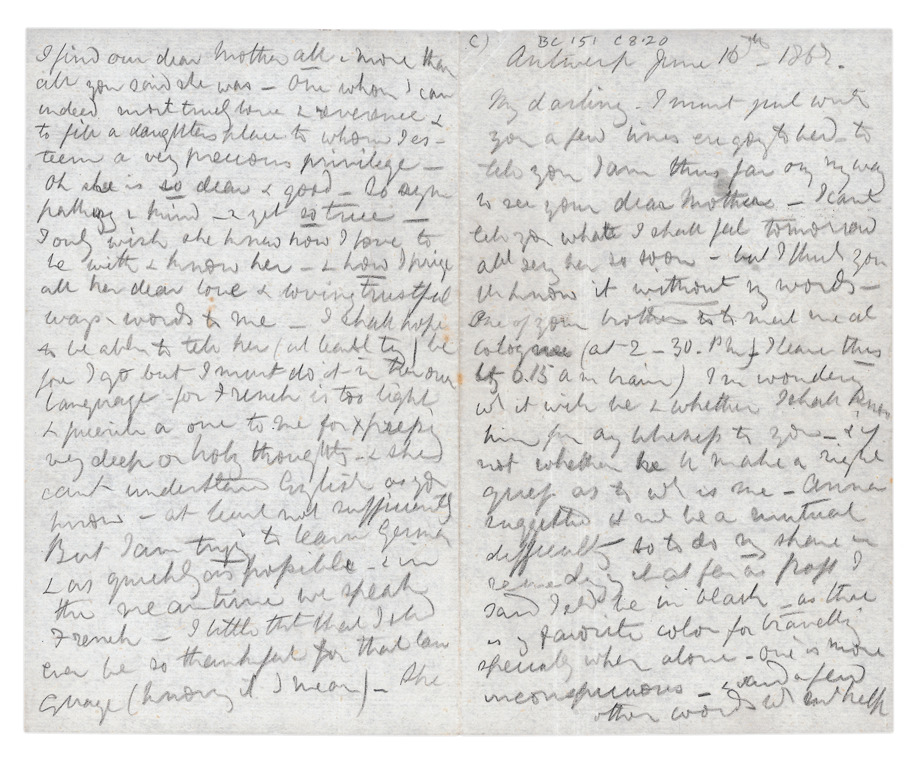 I find our dear Mother all & more than
all you said she was – One whom I can
indeed most truly love & reverence &
to fill a daughters place to whom I es-
teem a very precious privilege –
Oh she is so dear & good – So sym
pathy & kind – & yet so true –
I only wish she knew how I love to
be with & know her – & how I prize
all her dear love & loving trustful
ways & words to me – I shall hope
to be able to tell her (at least try) be
fore I go but I must do it in her own
language – for French is too light
& a one to me for expressg
very deep or holy thoughts – & she
cant understand English as you
know – at least not sufficiently
But I am tryg to learn German
& as quickly as possible – & in
the meantime we speak
French – I little tht that I shd
ever be so thankful for that lan
guage (knowing it I mean) – She
c) BC 151 C8.20
Antwerp June 10th – 1868.
My darling – I must just write
you a few lines ere gog to bed – to
tell you I am thus far on my way
to see your dear Mother – I cant
tell you what I shall feel tomorrow
abt seeg her so soon – but I think you
will know it without my words –
One of your brothers is to meet me at
Cologne (at 2–30. P.M. I leave this
by 6.15 am train) I'm wonderg
wh it will be & whether I shall know
him for any likeness to you – & if
not whether he'll make a right
guess as to wh is me – Anna
suggested it wd be a mutual
difficulty so to do my share in
remedyg it as far as poss I
said I shd be in black – as that
is my favorite color for travellg
specially when alone – one is more
inconspicuous – and a few
other words wh wd help